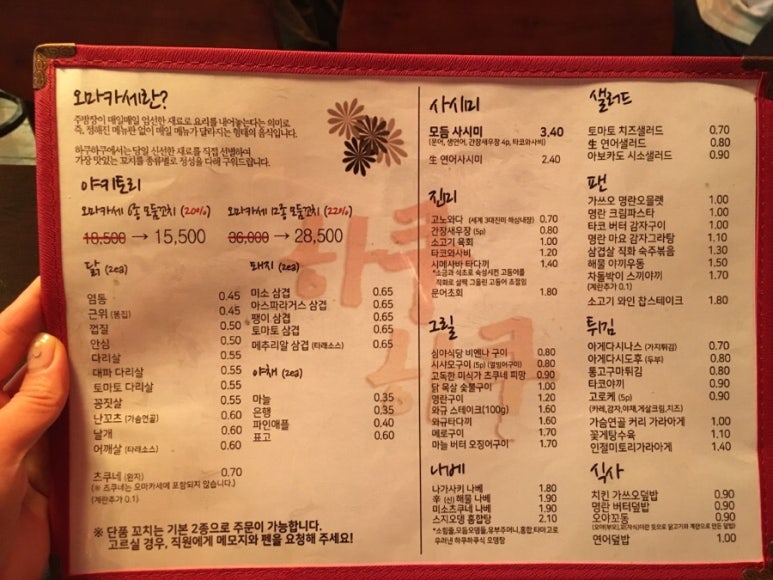 오마카세란?
주방장이 매일매일 엄선한 재료로 요리를 내어놓는다는 의미로
즉, 정해진 메뉴판 없이 매일 메뉴가 달라지는 형태의 음식입니다.
하쿠하쿠에서는 당일 신선한 재료를 직접 선별하여
가장 맛있는 꼬치를 종류별로 정성을 다해 구워드립니다.
야키토리
오마카세 6종 모둠꼬치 (20%)
18,500 → 15,500
오마카세 12종 모둠꼬치 (22%)
36,000 → 28,500
하쿠
하쿠
닭 (2ea)
염통 0.45
근위 (똥집) 0.45
껍질 0.50
안심 0.50
다리살 0.55
대파 다리살 0.55
토마토 다리살 0.55
꽁짓살 0.55
난꼬츠 (가슴연골) 0.60
날개 0.60
어깨살 (타래소스) 0.60
츠쿠네 (완자) 0.70
(※ 츠쿠네는 오마카세에 포함되지 않습니다.)
(계란추가 0.1)
돼지 (2ea)
미소 삼겹 0.65
아스파라거스 삼겹 0.65
팽이 삼겹 0.65
토마토 삼겹 0.65
메추리알 삼겹 (타래소스) 0.65
야채 (2ea)
마늘 0.35
은행 0.35
파인애플 0.40
표고 0.60
※ 단품 꼬치는 기본 2종으로 주문이 가능합니다.
고르실 경우, 직원에게 메모지와 펜을 요청해 주세요!
사시미
모듬 사시미 3.40
(문어, 생연어, 간장새우장 4p, 타코와사비)
生 연어사시미 2.40
진미
고노와다 (세계 3대진미 해삼내장) 0.70
간장새우장 (5p) 0.80
소고기 육회 1.00
타코와사비 1.20
시메사바 타다끼 1.40
*소금과 식초로 숙성시켜 고등어를
직화로 살짝 그을린 고등어 초절임
문어초회 1.80
그릴
심야식당 비엔나 구이 0.80
시샤모구이 (5p) (열빙어구이) 0.80
고독한 미식가 츠쿠네 피망 0.90
닭 목살 숯불구이 1.00
명란구이 1.20
와규 스테이크(100g) 1.60
와규타다끼 1.60
메로구이 1.70
마늘 버터 오징어구이 1.70
나베
나가사키 나베 1.80
辛 (신) 해물 나베 1.90
미소츠쿠네 나베 1.90
스지오뎅 홍합탕 2.10
*소힘줄,모듬오뎅들,유부주머니,홍합,타마고로
우려낸 하쿠하쿠식 오뎅탕
샐러드
토마토 치즈샐러드 0.70
生 연어샐러드 0.80
아보카도 시소샐러드 0.90
팬
가쓰오 명란오믈렛 1.00
명란 크림파스타 1.00
타코 버터 감자구이 1.00
명란 마요 감자그라탕 1.10
삼겹살 직화 숙주볶음 1.30
해물 야끼우동 1.50
차돌박이 스끼야끼 1.70
(계란추가 0.1)
소고기 와인 찹스테이크 1.80
튀김
아게다시나스 (가지튀김) 0.70
아게다시도후 (두부) 0.80
통고구마튀김 0.80
타코야끼 0.90
고로케 (5p) 0.90
(카레,감자,야채,게살크림,치즈)
가슴연골 커리 가라아게 1.00
꽃게탕수육 1.10
인절미토리가라아게 1.40
식사
치킨 가쓰오덮밥 0.90
명란 버터덮밥 0.90
오야꼬동 0.90
연어덮밥 1.00